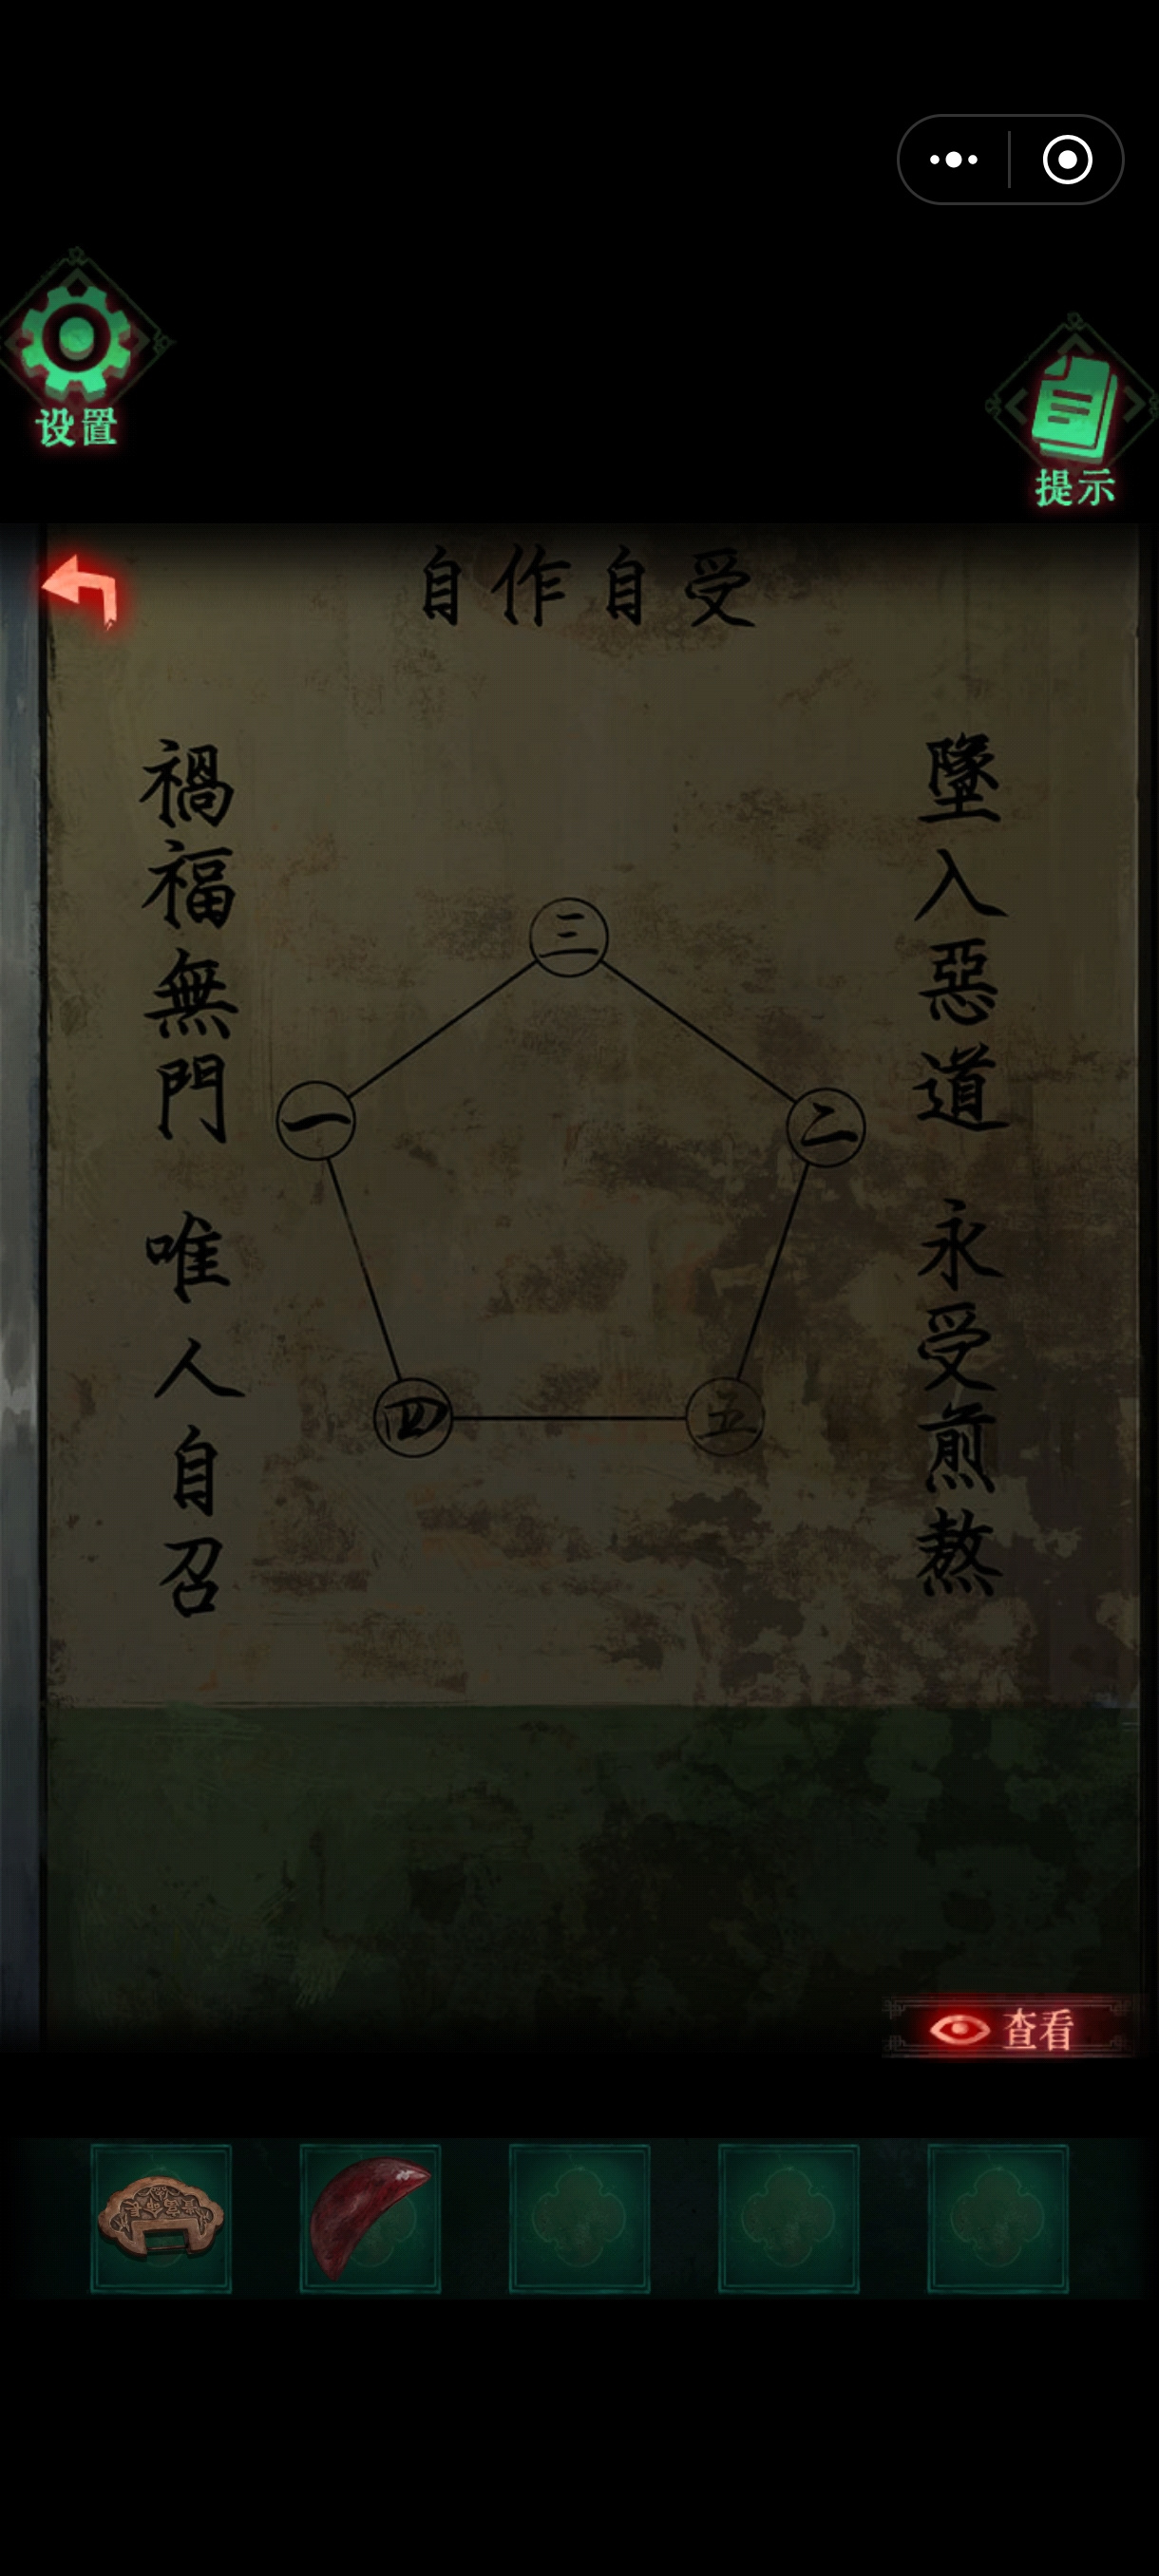 设置
提示
自作自受
禍福無門 唯人自召
墜入惡道 永受煎熬
三
一
二
四
五
查看